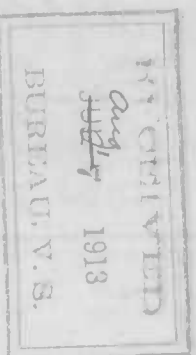 RECEIVED
Aug
JUL 7 1913
BUREAU. V. S.